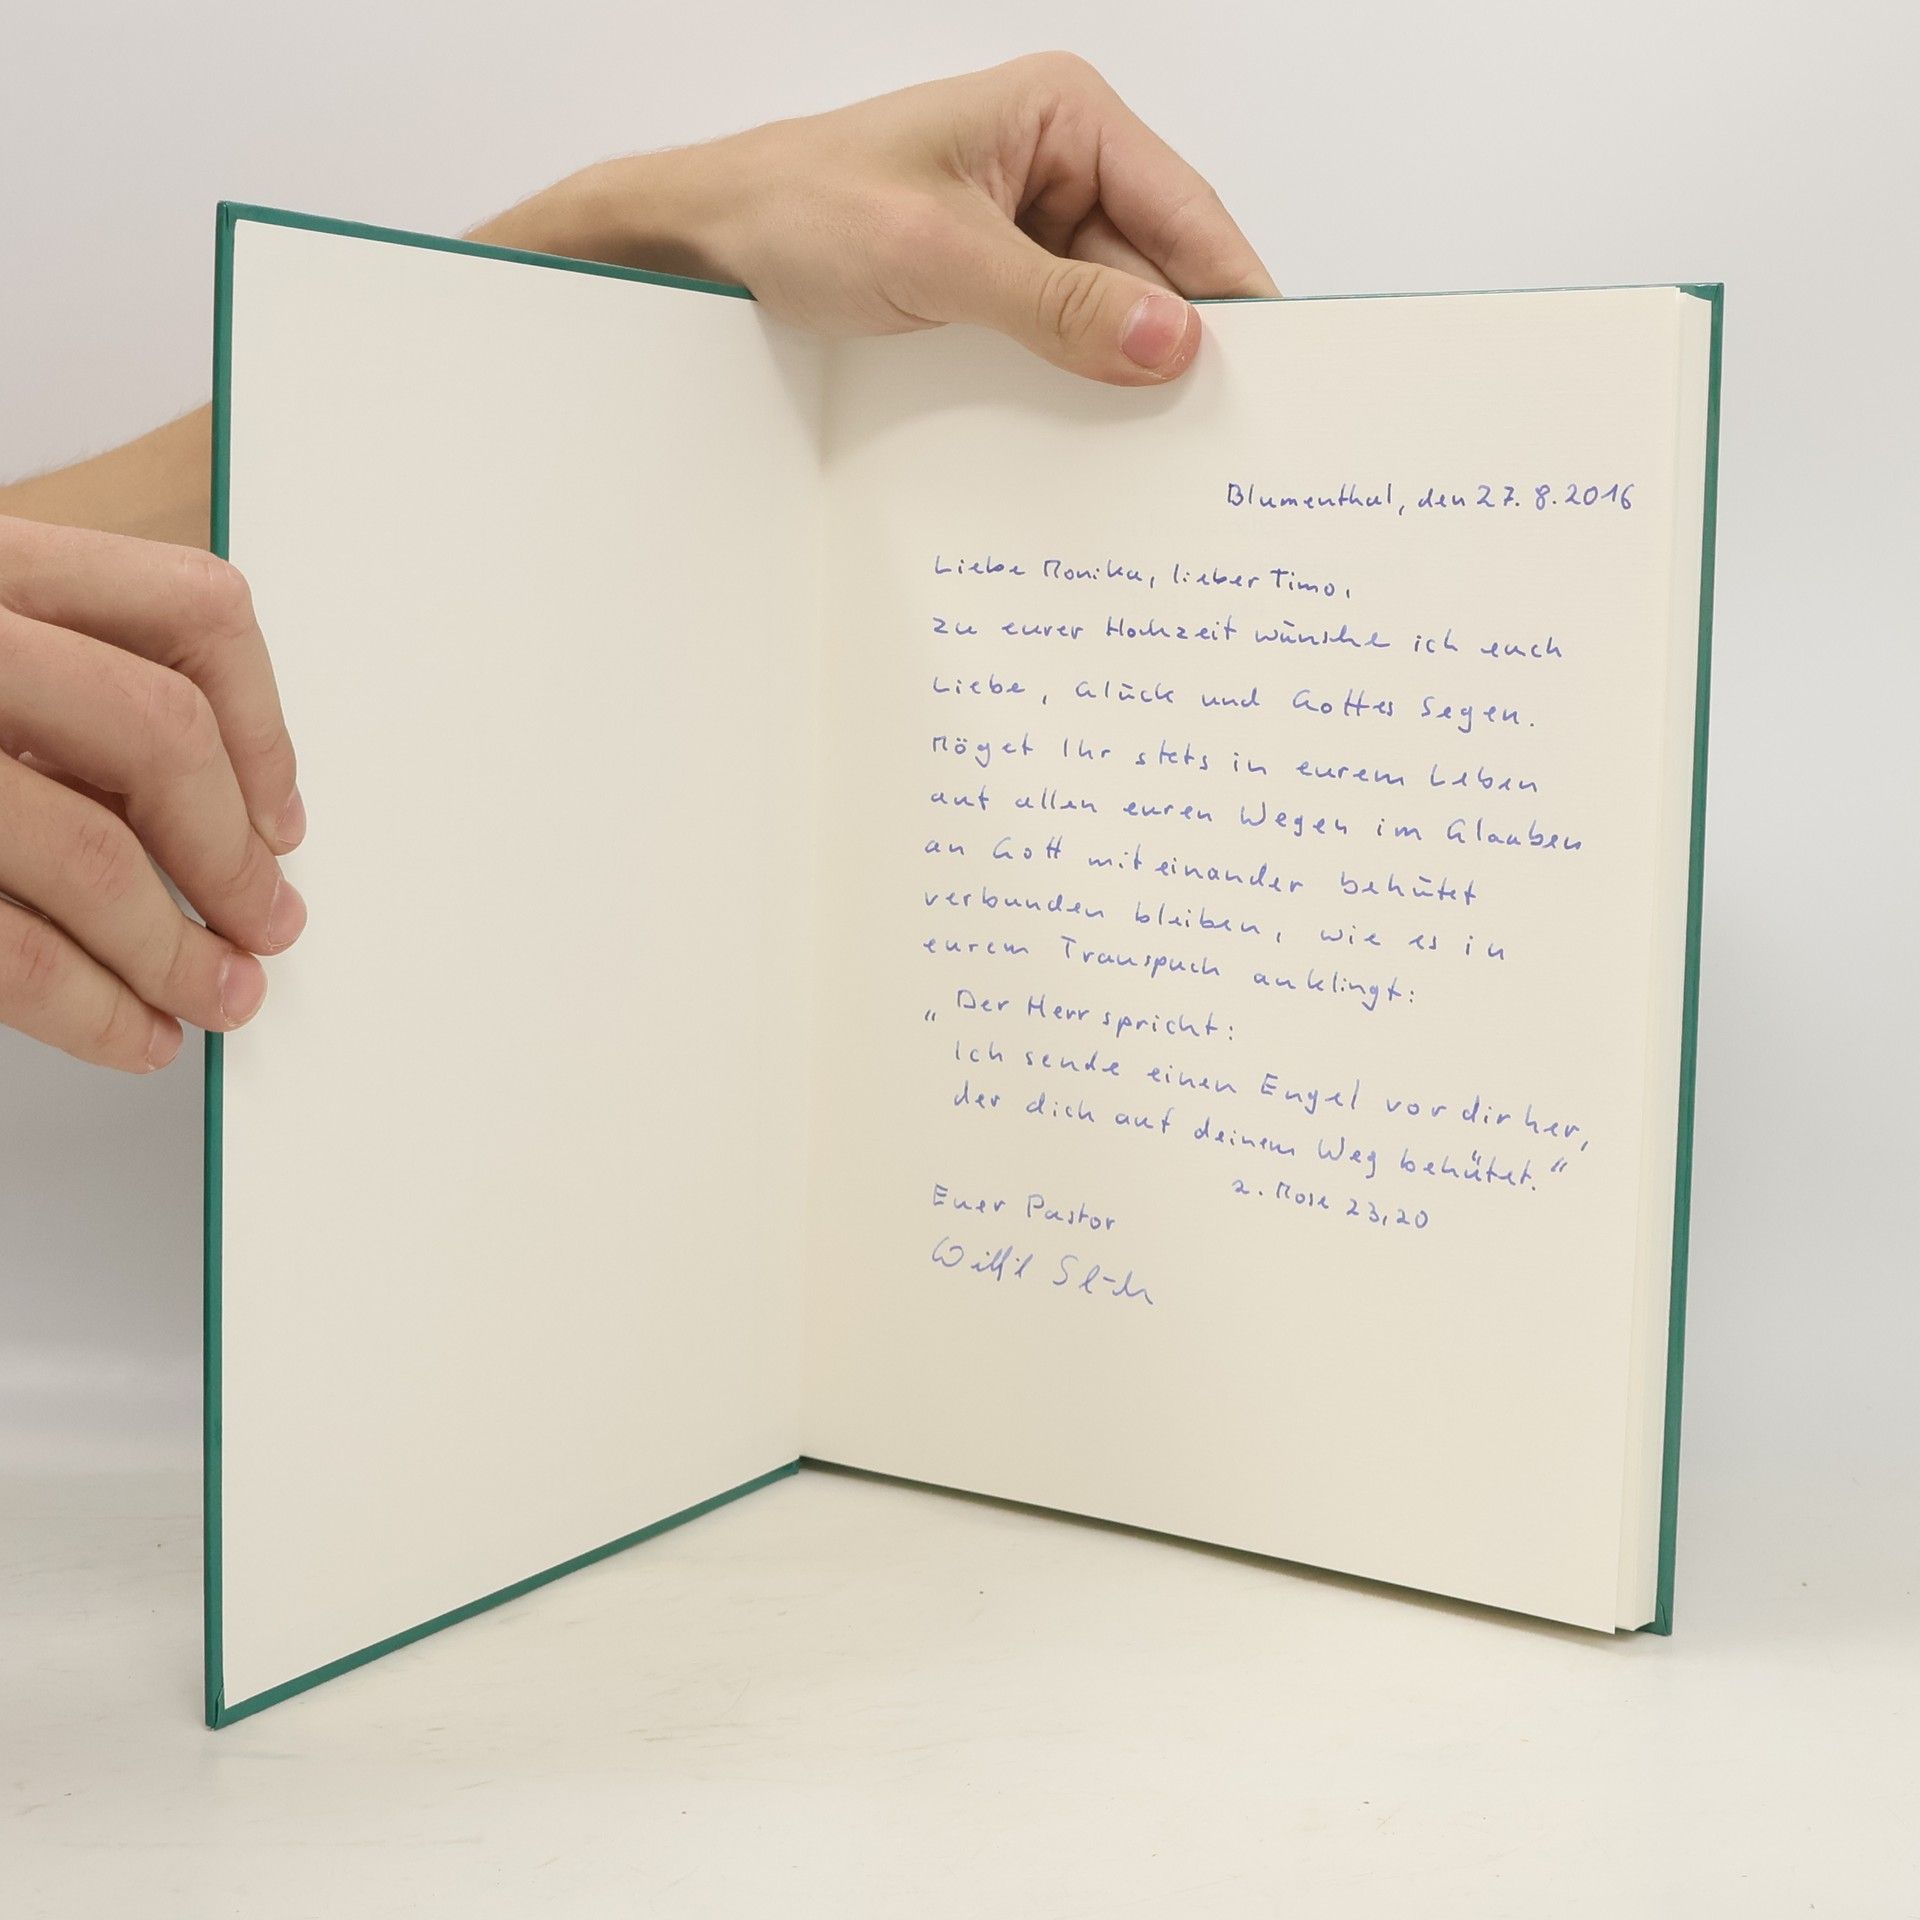 Blumenthal, den 27.8.2016
Liebe Monika, lieber Timo,
zu eurer Hochzeit wünsche ich euch
Liebe, Glück und Gottes Segen.
Möget Ihr stets in eurem Leben
auf allen euren Wegen im Glauben
an Gott miteinander behütet
verbunden bleiben, wie es in
eurem Trauspuch anklingt:
„Der Herr spricht:
Ich sende einen Engel vor dir her,
der dich auf deinem Weg behütet.“
2. Mose 23,20
Euer Pastor